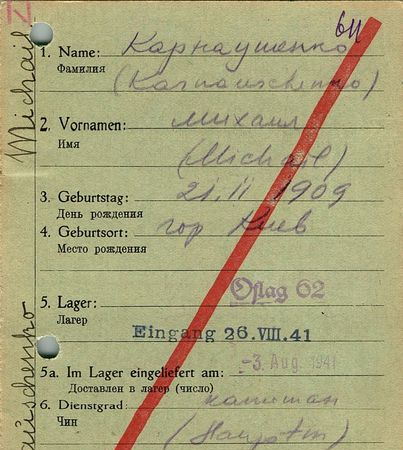 Z
611
1. Name: Карнаушенко
Фамилия
(Karnauschenko)
2. Vornamen: михаил
Имя
(Michail)
3. Geburtstag: 21.II 1909
День рождения
4. Geburtsort: гор Киев
Место рождения
5. Lager: Oflag 62
Лагер
Eingang 26.VIII.41
-3. Aug. 1941
5a. Im Lager eingeliefert am:
Доставлен в лагер (число)
6. Dienstgrad: капитан
Чин
(Hauptm)
Michail
auschenko